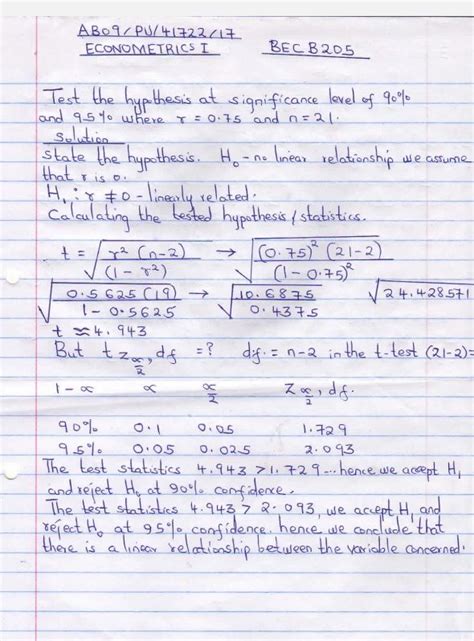 AB09/PU/41722/17
ECONOMETRICS I BEC B205
Test the hypothesis at significance level of 90%
and 95% where r = 0.75 and n = 21.
Solution
State the hypothesis. H₀ - no linear relationship we assume
that r is 0.
H₁ : r ≠ 0 - linearly related.
Calculating the tested hypothesis / statistics.
t = √(r² (n-2) / (1 - r²)) → √((0.75)² (21-2) / (1 - 0.75)²)
√(0.5625 (19) / 1 - 0.5625) → √(10.6875 / 0.4375) √24.428571
t ≈ 4.943
But t Z α/2, df = ? df. = n-2 in the t-test (21-2)=
1-α α α/2 Z α/2, df.
90% 0.1 0.05 1.729
95% 0.05 0.025 2.093
The test statistics 4.943 > 1.729... hence we accept H₁
and reject H₀ at 90% confidence.
The test statistics 4.943 > 2.093, we accept H₁ and
reject H₀ at 95% confidence. hence we conclude that
there is a linear relationship between the variable concerned.